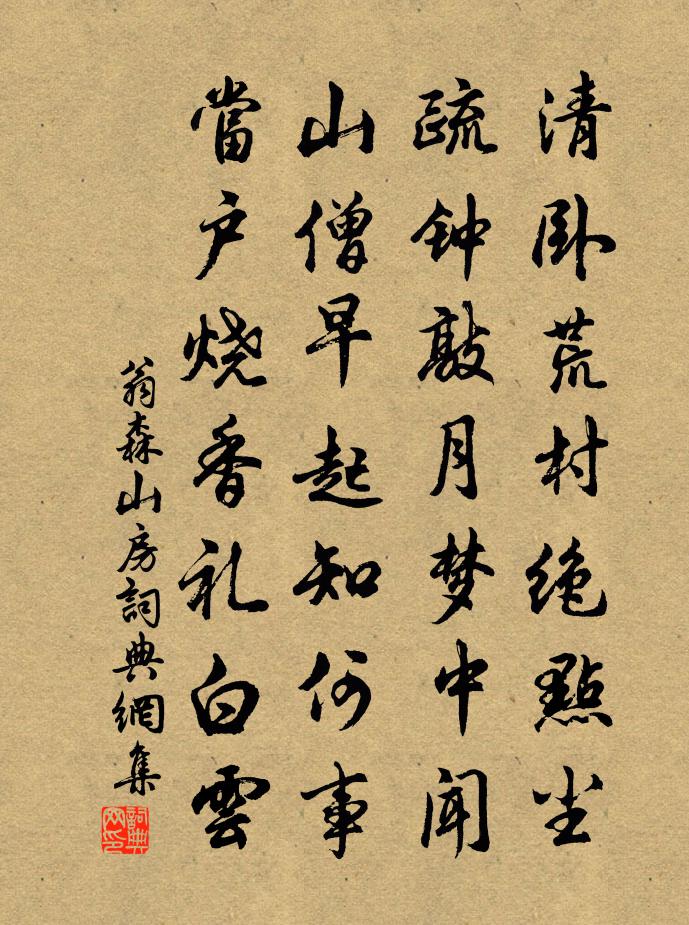 清卧荒村绝點尘
疏钟敲月梦中闻
山僧早起知何事
當户烧香礼白雲
翁森山房詞典網集
詞典网印